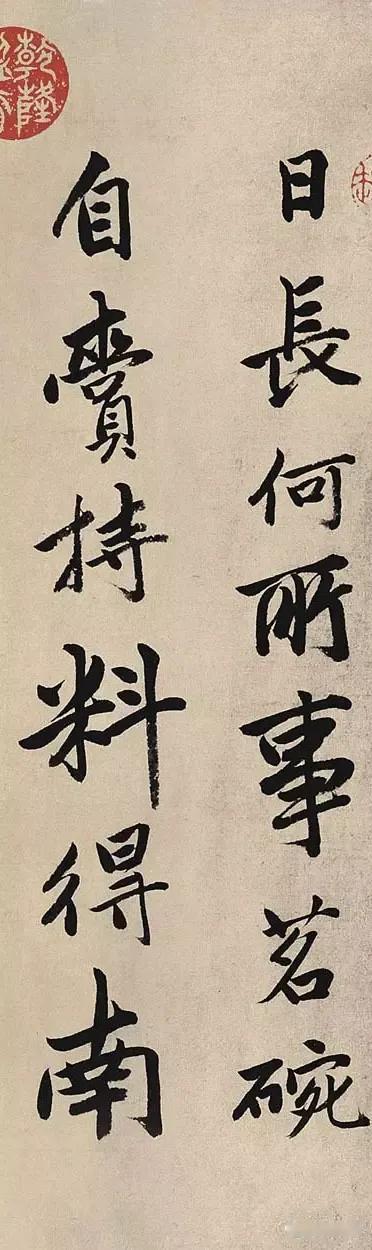 日長何所事茗碗
自賷持料得南
乾隆